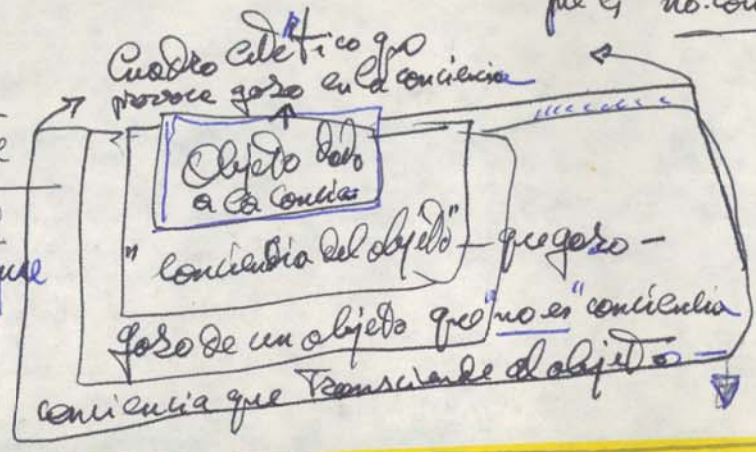 que es no-con
Cuadro estético que
provoca gozo en la conciencia
Objeto dado
a la concia
"conciencia del objeto" - que gozo -
gozo de un objeto que "no es" conciencia
conciencia que Transciende al objeto -